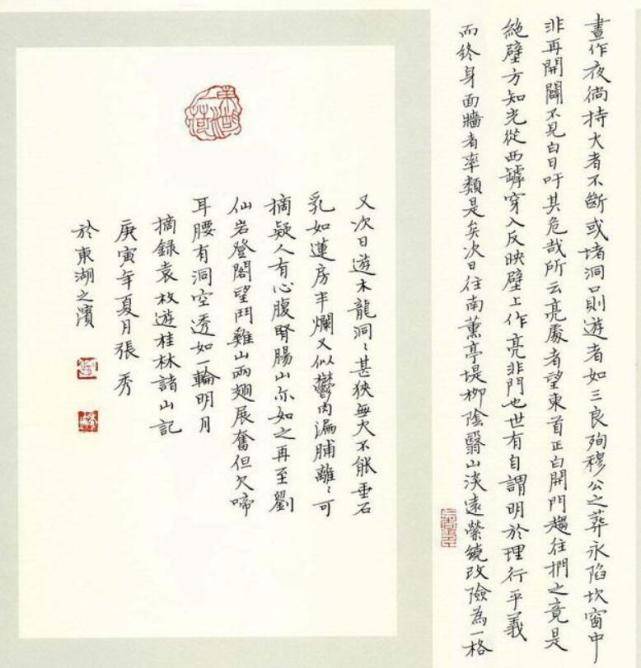 晝作夜倘持大者不斷或堵洞口則遊者如三良殉穆公之葬永陷坎窗中
非再開闢不見白日吁其危哉所云亮處者望東首正白開門趨往捫之竟是
絕壁方知光從西罅穿入反映壁上作亮非門也世有自謂明於理行平義
而終身面牆者率類是矣次日往南薰亭堤柳陰翳山淡遠縈繞改險為一格
又次日遊木龍洞〻甚狹無火不能垂石
乳如蓮房半爛又似鬱肉漏脯離〻可
摘疑人有心腹腎腸山亦如之再至劉
仙岩登閣望鬥雞山兩翅展奮但欠啼
耳腰有洞空透如一輪明月
摘錄袁枚遊桂林諸山記
庚寅年夏月張秀
於東湖之濱